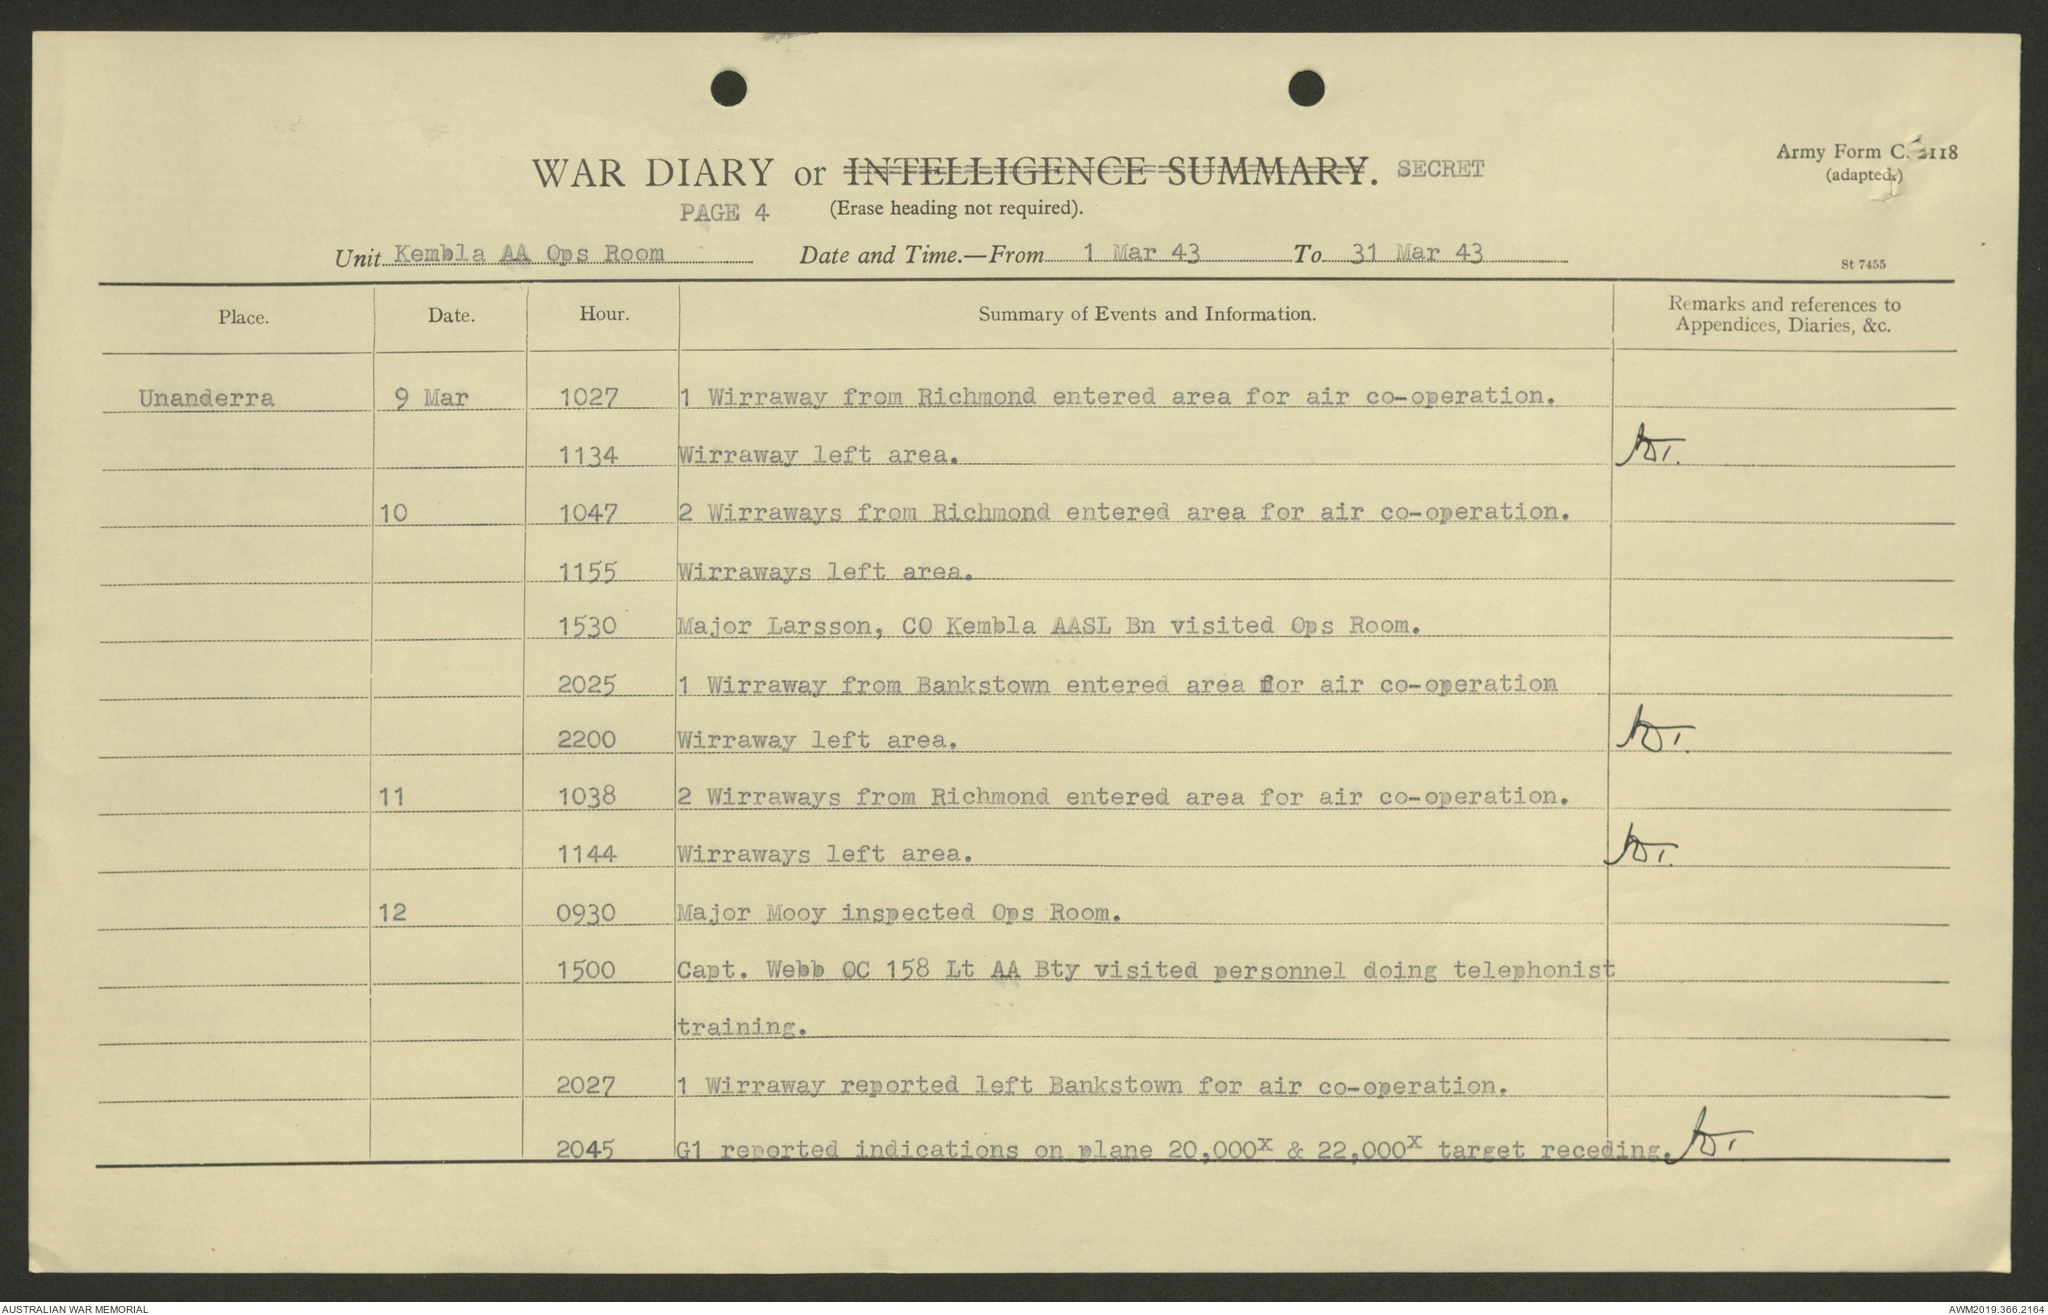 WAR DIARY or INTELLIGENCE SUMMARY. SECRET
Army Form C. 2118
(adapted.)
PAGE 4 (Erase heading not required).
Unit Kembla AA Ops Room Date and Time.—From 1 Mar 43 To 31 Mar 43
St 7455
Place. Date. Hour. Summary of Events and Information. Remarks and references to
Appendices, Diaries, &c.
Unanderra 9 Mar 1027 1 Wirraway from Richmond entered area for air co-operation.
1134 Wirraway left area.
10 1047 2 Wirraways from Richmond entered area for air co-operation.
1155 Wirraways left area.
1530 Major Larsson, CO Kembla AASL Bn visited Ops Room.
2025 1 Wirraway from Bankstown entered area for air co-operation
2200 Wirraway left area.
11 1038 2 Wirraways from Richmond entered area for air co-operation.
1144 Wirraways left area.
12 0930 Major Mooy inspected Ops Room.
1500 Capt. Webb OC 158 Lt AA Bty visited personnel doing telephonist
training.
2027 1 Wirraway reported left Bankstown for air co-operation.
2045 G1 reported indications on plane 20,000x & 22,000x target receding.
AUSTRALIAN WAR MEMORIAL AWM2019.366.2164